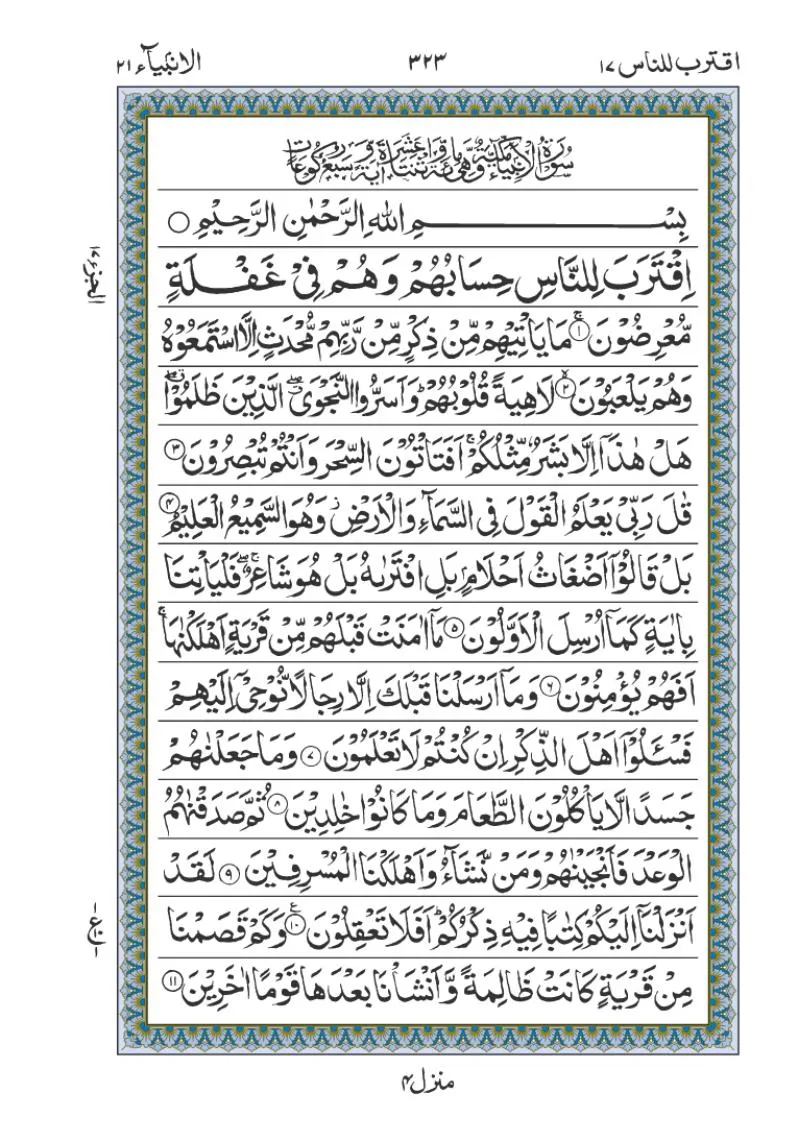 اقترب للناس ١٧
٣٢٣
الانبیآء ٢١
سُوْرَةُ الْاَنْبِیَآءِ مَكِّیَّةٌ وَّهِیَ مِائَةٌ وَّاثْنَتَا عَشْرَةَ اٰیَةً وَّسَبْعُ رُكُوْعَاتٍ
بِسْـــــــــــمِ اللهِ الرَّحْمٰنِ الرَّحِیْمِ ○
اِقْتَرَبَ لِلنَّاسِ حِسَابُهُمْ وَهُمْ فِیْ غَفْلَةٍ
مُّعْرِضُوْنَ ۚ‏﴿١﴾ مَا یَاْتِیْهِمْ مِّنْ ذِكْرٍ مِّنْ رَّبِّهِمْ مُّحْدَثٍ اِلَّا اسْتَمَعُوْهُ
وَهُمْ یَلْعَبُوْنَ ۙ‏﴿٢﴾ لَاهِیَةً قُلُوْبُهُمْ ؕ وَاَسَرُّوا النَّجْوَی ۖۗ الَّذِیْنَ ظَلَمُوْا ۖۗ
هَلْ هٰذَاۤ اِلَّا بَشَرٌ مِّثْلُكُمْ ۚ اَفَتَاْتُوْنَ السِّحْرَ وَاَنْتُمْ تُبْصِرُوْنَ ﴿٣﴾
قٰلَ رَبِّیْ یَعْلَمُ الْقَوْلَ فِی السَّمَآءِ وَالْاَرْضِ ز وَهُوَ السَّمِیْعُ الْعَلِیْمُ ﴿٤﴾
بَلْ قَالُوْۤا اَضْغَاثُ اَحْلَامٍۭ بَلِ افْتَرٰىهُ بَلْ هُوَ شَاعِرٌ ۖۚ فَلْیَاْتِنَا
بِاٰیَةٍ كَمَاۤ اُرْسِلَ الْاَوَّلُوْنَ ﴿٥﴾ مَاۤ اٰمَنَتْ قَبْلَهُمْ مِّنْ قَرْیَةٍ اَهْلَكْنٰهَا ۚ
اَفَهُمْ یُؤْمِنُوْنَ ﴿٦﴾ وَمَاۤ اَرْسَلْنَا قَبْلَكَ اِلَّا رِجَالًا نُّوْحِیْۤ اِلَیْهِمْ
فَسْـَٔلُوْۤا اَهْلَ الذِّكْرِ اِنْ كُنْتُمْ لَا تَعْلَمُوْنَ ﴿٧﴾ وَمَا جَعَلْنٰهُمْ
جَسَدًا لَّا یَاْكُلُوْنَ الطَّعَامَ وَمَا كَانُوْا خٰلِدِیْنَ ﴿٨﴾ ثُمَّ صَدَقْنٰهُمُ
الْوَعْدَ فَاَنْجَیْنٰهُمْ وَمَنْ نَّشَآءُ وَاَهْلَكْنَا الْمُسْرِفِیْنَ ﴿٩﴾ لَقَدْ
اَنْزَلْنَاۤ اِلَیْكُمْ كِتٰبًا فِیْهِ ذِكْرُكُمْ ؕ اَفَلَا تَعْقِلُوْنَ ۠﴿١٠﴾ وَكَمْ قَصَمْنَا
مِنْ قَرْیَةٍ كَانَتْ ظَالِمَةً وَّاَنْشَاْنَا بَعْدَهَا قَوْمًا اٰخَرِیْنَ ﴿١١﴾
الجزء ١٧
- ع -
منزل ٤